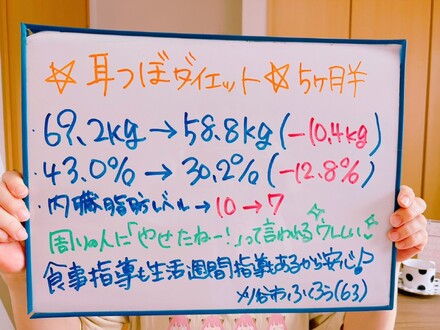 ☆耳つぼダイエット☆5ヶ月半
・69.2kg→58.8kg(-10.4kg)
・43.0%→30.2%(-12.8%)
・内臓脂肪レベル→10→7
周りの人に「やせたねー!」って言われるウレしい
食事指導も生活週間指導もあるから安心♪
ふくろう(63)